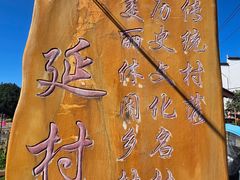 传统村落
历史文化名村
美丽休闲乡村
延村